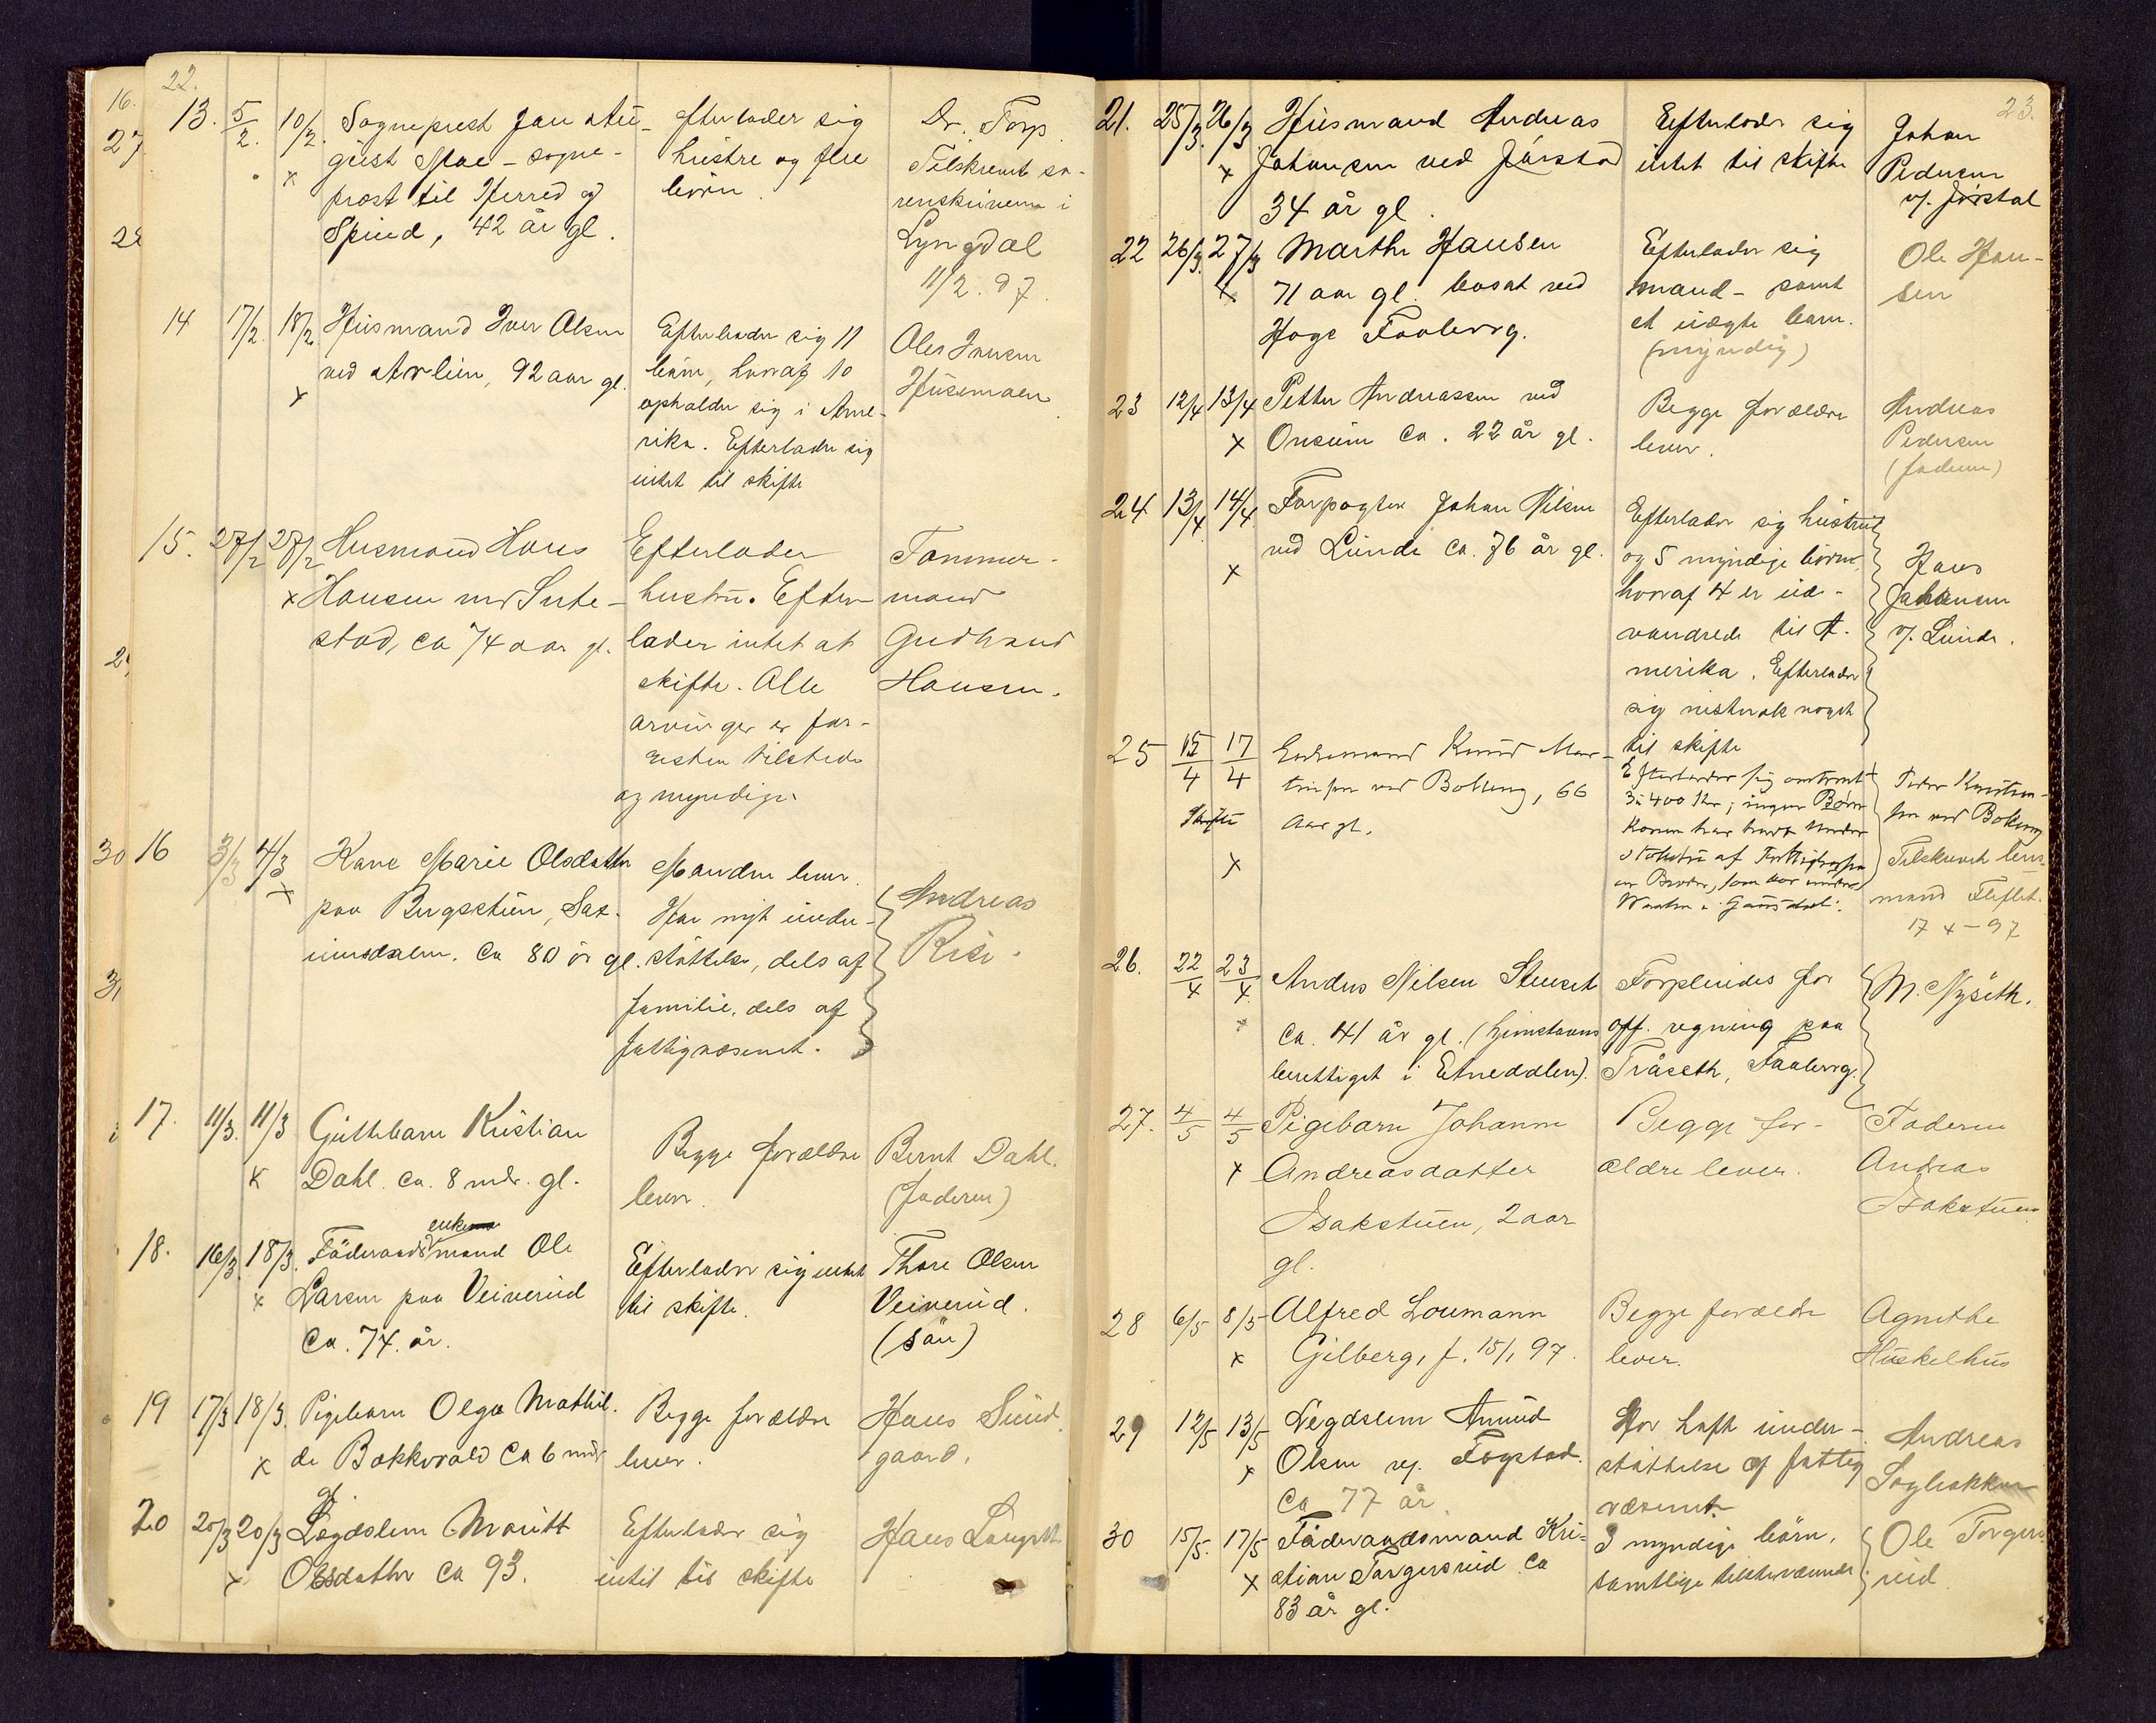 22.
13. 5/2. 10/2. Sogneprest Jan Au-
gust Moe - sogne-
prest til Herred og
Spind, 42 år gl.
efterlader sig
hustru og flere
börn.
Dr. Torp.
Tilskrevet so-
renskriveren i
Lyngdal
11/2. 97.
14 17/2. 18/2 Husmand Iver Olsen
ved 92 aar gl.
x
Efterlader sig 11
börn, hvoraf 10
opholder sig i Ame-
rika. Efterlader sig
intet til skifte
Oles Iversen
15. 27/2 27/2 Husmand Hans
x Hansen ved
stad, ca 74 aar gl.
Efterlader
hustru. Efter-
lader intet at
skifte. Alle
arvinger er for-
resten tilstede
og myndige.
Tømmer-
mand
Gudbrand
Hansen.
16 3/3 4/3 Kari Marie Olsdatter
x
paa Bergstuen, Sax-
umsdalen. Ca 80 år gl.
Manden lever.
Har nyt under-
støttelse, dels af
familie, dels af
fattigvæsenet.
Andreas
Rise.
17. 11/3. 11/3 Guttebarn Kristian
x Dahl. ca. 8 mdr. gl.
Begge forældre
lever.
Bernt Dahl.
(faderen)
18. 16/3 18/3. Föderaads enkemand Ole
x Larsen paa Veiverud
Ca. 74. år.
Efterlader sig intet
til skifte.
Thore Olsen
Veiverud.
(sön)
19 17/3 18/3. Pigebarn Olga Mathil-
x de Bakkevold ca 6 mdr
gl.
Begge forældre
lever.
Hans Sund-
gaard.
20 20/3 20/3 Lægdslem Maritt
x Olsdatter ca 93.
Efterlader sig
intet til skifte
Hans
23.
21. 25/3. 26/3 Husmand Andreas
x Johansen ved Jörstad
34 år gl.
Efterlader sig
intet til skifte
Johan
Pedersen
v/. Jörstad
22 26/3. 27/3 Marthe Hansen
x 71 aar gl. bosat ved
Hage Faaberg.
Efterlader sig
mand - samt
et uægte barn.
(myndig)
Ole Han-
sen
23 12/4 13/4 Petter Andreassen ved
x Onsum ca. 22 år gl.
Begge forældre
lever.
Andreas
Pedersen
(faderen)
24 13/4 14/4 Forpagter Johan Nilsen
ved Lunde ca. 76 år gl.
x
Efterlader sig hustru
og 5 myndige börn,
hvoraf 4 er ud-
vandrede til A-
merika. Efterlader
sig noget
til skifte
Hans
Johansen
v/. Lunde.
25 15/4 17/4 Enkemand Knud Mar-
tinsen ved Bolteng, 66
Aar gl.
Skifte
x
Efterlader sig omtrent
3 à 400 Kr; ingen Børn
Konen har havt Under
støttelse af
en Broder, som var under
i Gausdal.
Peder Knudsen-
ved Bolteng
Tilskrevet lens-
mand Fliflet.
17 4 - 97
26. 22/4 23/4 Anders Nilsen
x ca. 41 år gl. (hjemstavns
berettiget i Etnedalen).
Forpleiedes for
off. regning paa
Tråseth, Faaberg.
M. Nyseth.
27. 4/5 4/5 Pigebarn Johanne
x Andreasdatter
Isakstuen, 2 aar
gl.
Begge for-
ældre lever.
Faderen
Andreas
Isakstuen
28 6/5 8/5 Alfred Loumann
x Gilberg, f. 15/1 97.
Begge forældre
lever.
Agnethe
Huskelhus
29 12/5 13/5 Legdslem Amund
x Olsen v/. Fogstad.
Ca 77 år
Har haft under-
støttelse af fattig
væsenet.
Andreas
Sagbakken
30 15/5. 17/5 Föderaadsmand Kri-
x stian Torgersrud ca
83 år gl.
3 myndige börn,
samtlige tilstedeværende
Ole Torgers-
rud.